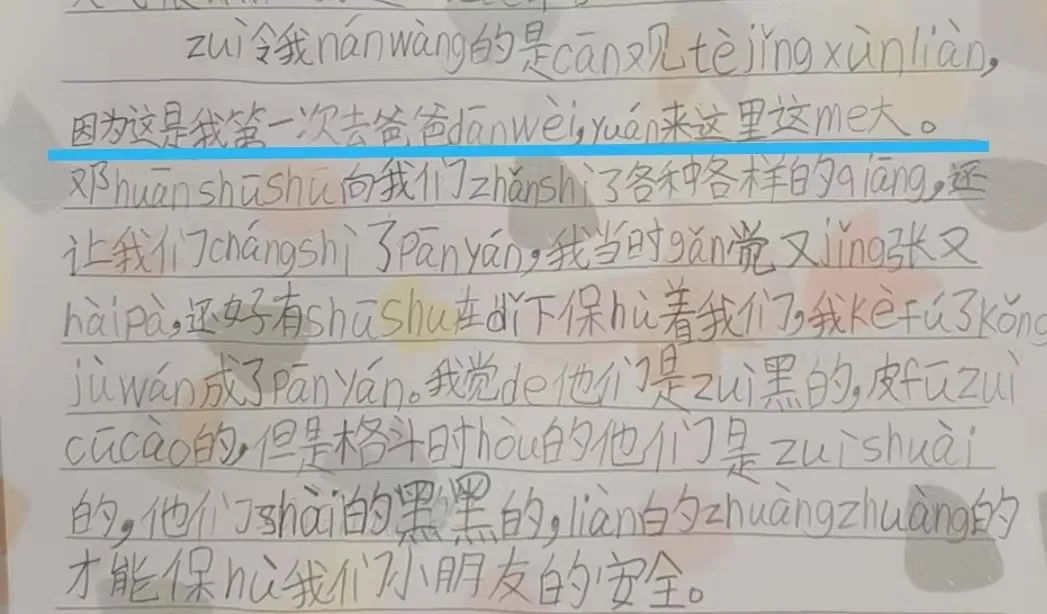 zuì令我nánwàng的是cān又见tèjǐngxùnliàn,
因为这是我第一次去爸爸dānwèi,yuán来这里这me大。
邓huānshūshu向我们zhǎnshì了各种各样的qiāng,还
让我们chángshì了pānyán,我当时gǎn觉又jǐng张又
hàipà,还好有shūshu在dǐ下保hù着我们,我kèfú了kǒng
jùwán成了pānyán。我觉de他们是zuì黑的,皮fūzuì
cūcào的,但是格斗时hòu的他们是zuìshuài
的,他们shài的黑黑的,liàn的zhuàngzhuàng的
才能保hù我们小朋友的安全。